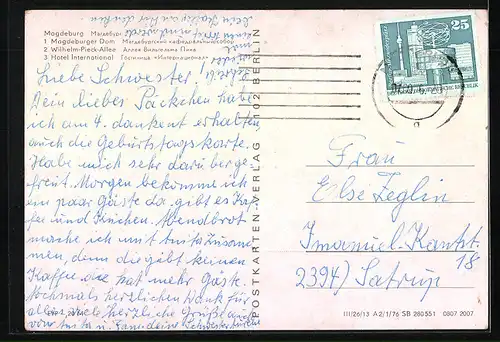 Magdeburg Магдебург
1 Magdeburger Dom Магдебургский кафедральный собор
2 Wilhelm-Pieck-Allee Аллея Вильгельма Пика
3 Hotel International Гостиница «Интернационал»
Liebe Schwester!
Dein liebes Päckchen habe
ich am 4. dankent erhalten
auch die Geburtstagskarte.
Habe mich sehr darüber ge-
freut. Morgen bekomme ich
ein paar Gäste da gibt es Kaf
fee und Kuchen. Abendbrot
mache ich mit Anita Zusam
men, denn die gibt keinen
Kaffee die hat mehr Gäste.
Nochmals herzlichen Dank für
alles und viele herzliche Grüße auch
von Anita u. Fam. deine Schwester
POSTKARTEN-VERLAG 102 BERLIN
25
Frau
Else Zeglin
Imanuel-Kantst.
18
2394) Satrup
III/26/13 A 2/1/76 SB 280551 0807 2007